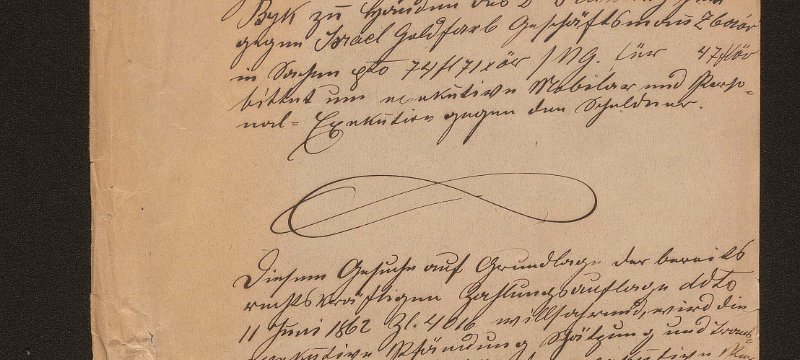 Byk zu Händen des D
gegen Israel Goldfarb Geschäftsmann Zbaór
in Sachen pto 74 f 71 xör /NG. für 47 f ör
bittet um exekutive Mobilar und Perso-
nal-Exekution gegen den Schuldner.
Diesem Gesuche auf Grundlage der bereits
rechtskräftigen Zahlungsauflage ddto
11 Juni 1862 Zl. 4016 willfahrend, wird die
exekutive Pfändung Schätzung und